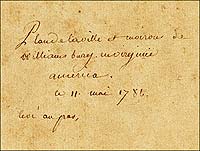 Plan de la ville et environs de
Williamsburg en virginie
america.
le 11. mai 1782.